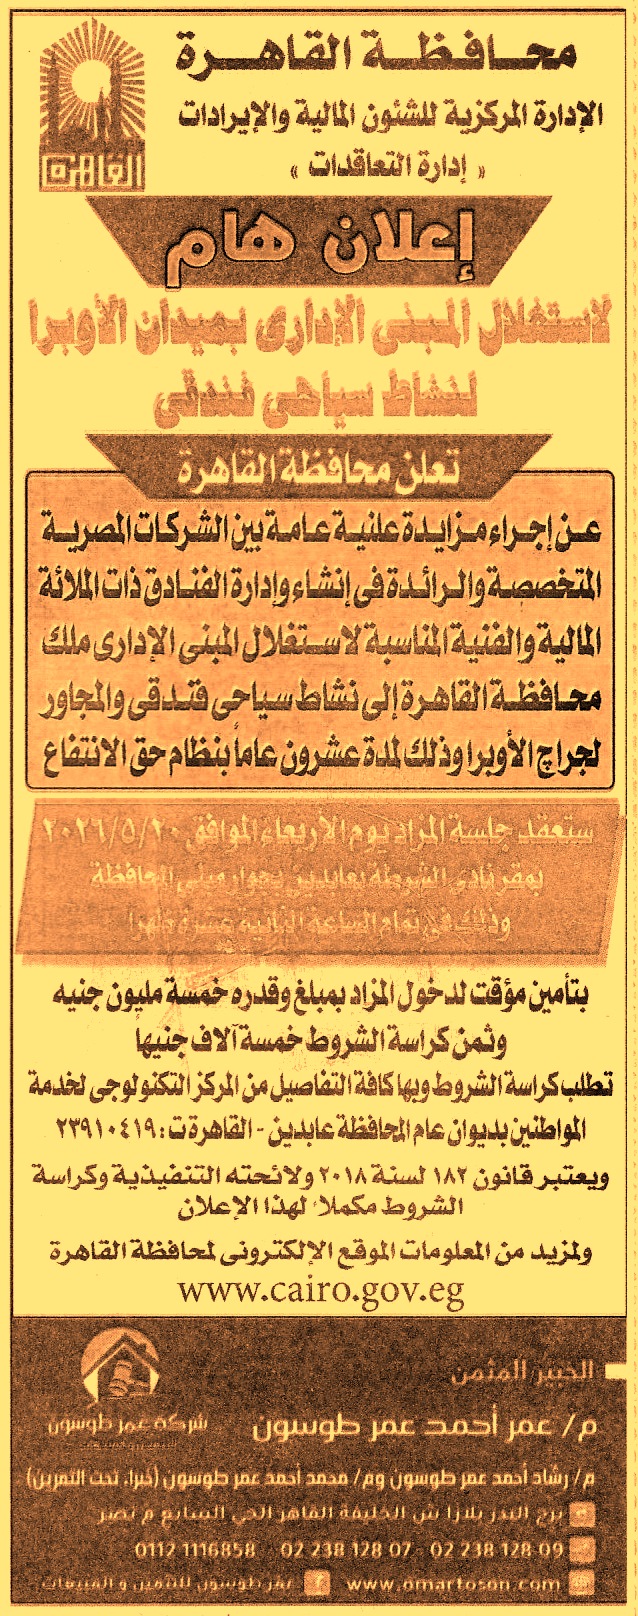 محافظة القاهرة
الإدارة المركزية للشئون المالية والإيرادات
« إدارة التعاقدات »
القاهرة
إعلان هام
لاستغلال المبنى الإدارى بميدان الأوبرا
لنشاط سياحى فندقى
تعلن محافظة القاهرة
عن إجراء مزايدة علنية عامة بين الشركات المصرية
المتخصصة والرائدة فى إنشاء وإدارة الفنادق ذات الملائة
المالية والفنية المناسبة لاستغلال المبنى الإدارى ملك
محافظة القاهرة إلى نشاط سياحى فندقى والمجاور
لجراج الأوبرا وذلك لمدة عشرون عاماً بنظام حق الانتفاع
ستعقد جلسة المزاد يوم الأربعاء الموافق ٢٠٢٦/٥/٢٠
بمقر نادى الشرطة بعابدين بجوار مبنى المحافظة
وذلك فى تمام الساعة الثانية عشرة ظهراً
بتأمين مؤقت لدخول المزاد بمبلغ وقدره خمسة مليون جنيه
وثمن كراسة الشروط خمسة آلاف جنيها
تطلب كراسة الشروط وبها كافة التفاصيل من المركز التكنولوجى لخدمة
المواطنين بديوان عام المحافظة عابدين - القاهرة ت : ٢٣٩١٠٤١٩
ويعتبر قانون ١٨٢ لسنة ٢٠١٨ ولائحته التنفيذية وكراسة
الشروط مكملاً لهذا الإعلان
ولمزيد من المعلومات الموقع الإلكترونى لمحافظة القاهرة
www.cairo.gov.eg
الخبير المثمن
م/ عمر أحمد عمر طوسون
شركة عمر طوسون
م/ رشاد أحمد عمر طوسون وم/ محمد أحمد عمر طوسون (خبراء تحت التمرين)
برج البدر بلازا ش الخليفة القاهر الحي السابع م نصر
0112 1116858 02 238 128 07 02 238 128 09
www.omartoson.com عمر طوسون للتثمين و المبيعات